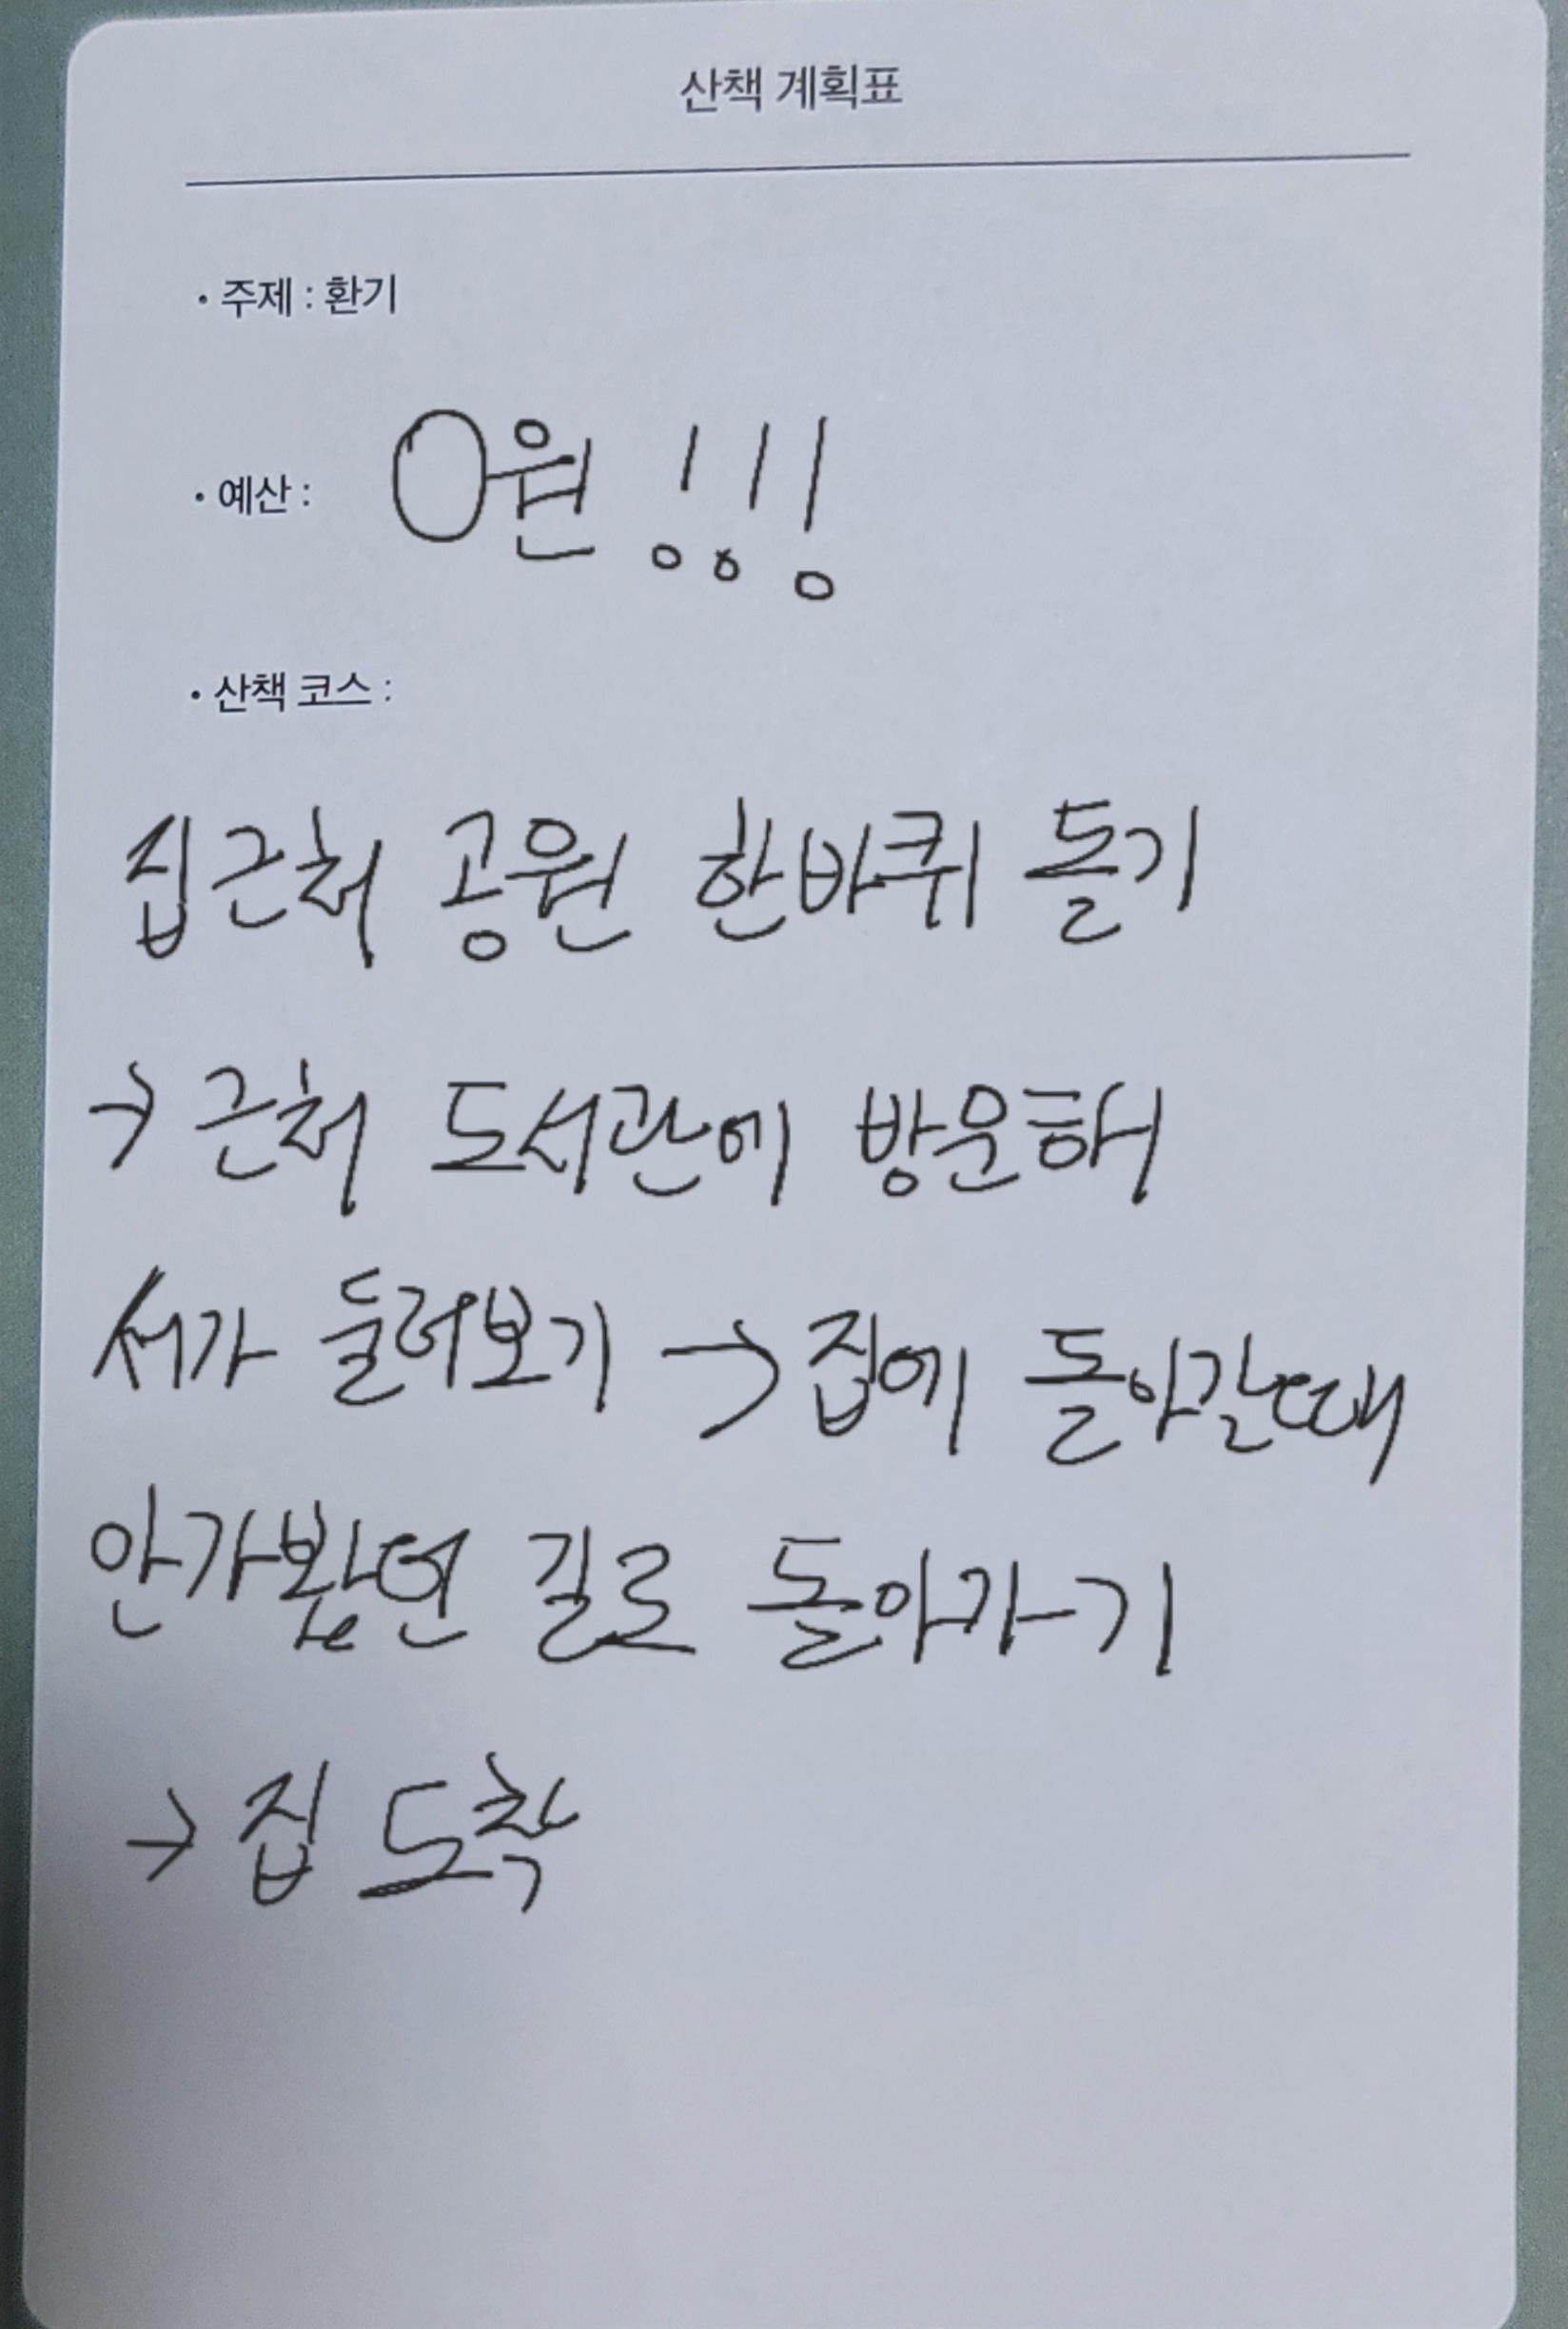 산책 계획표
• 주제 : 환기
• 예산 : 0원 !!!
• 산책 코스 :
집근처 공원 한바퀴 돌기
→ 근처 도서관에 방운해
서가 둘러보기 → 집에 돌아갈때
안가봤던 길로 돌아가기
→ 집 도착